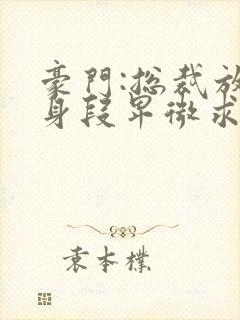 豪門:總裁放
身段卑微求
袁本樸